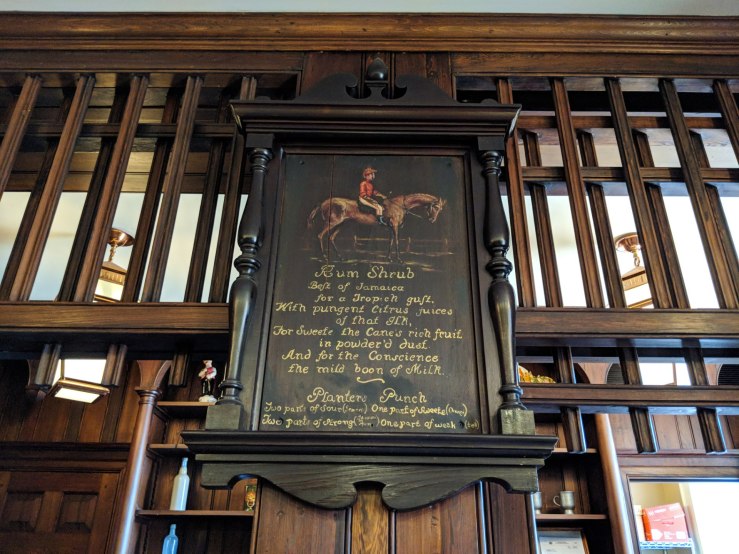 Rum Shrub
Best of Jamaica
for a Tropich gust.
With pungent Citrus juices
of that Ilk,
For Sweete the Cane's rich fruit
in powder'd dust.
And for the Conscience
the mild boon of Milk.
Planters Punch
Two parts of Sour One part of Sweete
Two parts of Strong One part of weak